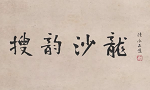 龍沙韵搜